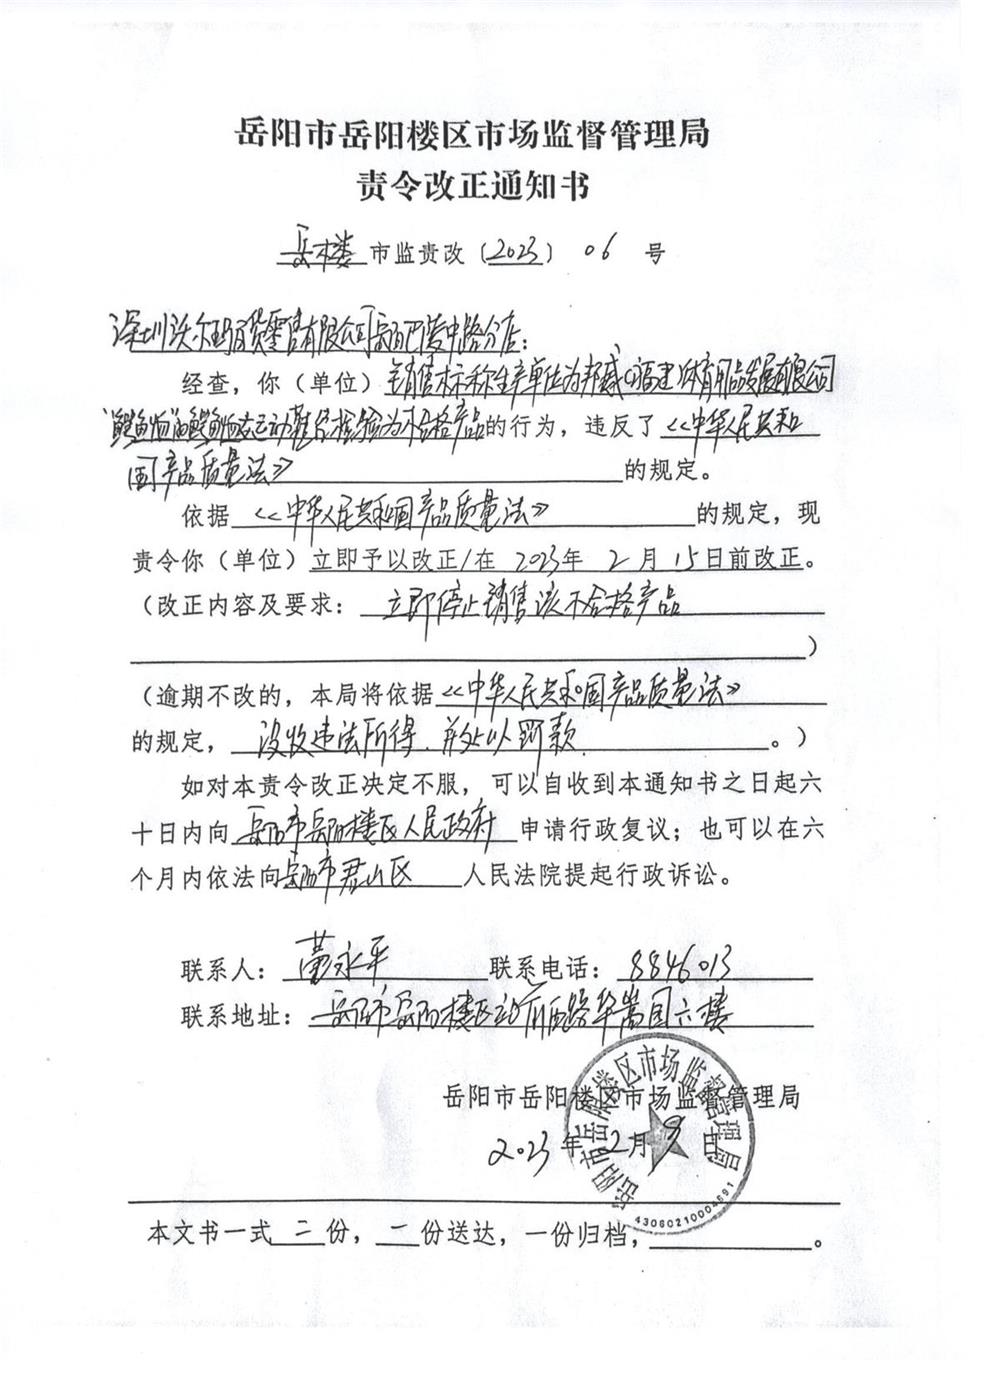 岳阳市岳阳楼区市场监督管理局
责令改正通知书
岳楼市监责改〔2023〕06号
深圳沃尔玛百货零售有限公司岳阳巴陵中路分店：
经查，你（单位）销售标称生产单位为邦威（福建）体育用品发展有限公司
“鳄鱼恤”运动鞋经检验为不合格产品的行为，违反了《中华人民共和
国产品质量法》的规定。
依据《中华人民共和国产品质量法》的规定，现
责令你（单位）立即予以改正/在2023年2月15日前改正。
（改正内容及要求：立即停止销售该不合格产品
）
（逾期不改的，本局将依据《中华人民共和国产品质量法》
的规定，没收违法所得、并处以罚款。）
如对本责令改正决定不服，可以自收到本通知书之日起六
十日内向岳阳市岳阳楼区人民政府申请行政复议；也可以在六
个月内依法向岳阳市君山区人民法院提起行政诉讼。
联系人：永平 联系电话：8846013
联系地址：岳阳市岳阳楼区路华嵩国六楼
岳阳市岳阳楼区市场监督管理局
2023年2月8
岳阳市岳阳楼区市场监督管理局
43060210004691
本文书一式三份，二份送达，一份归档，。